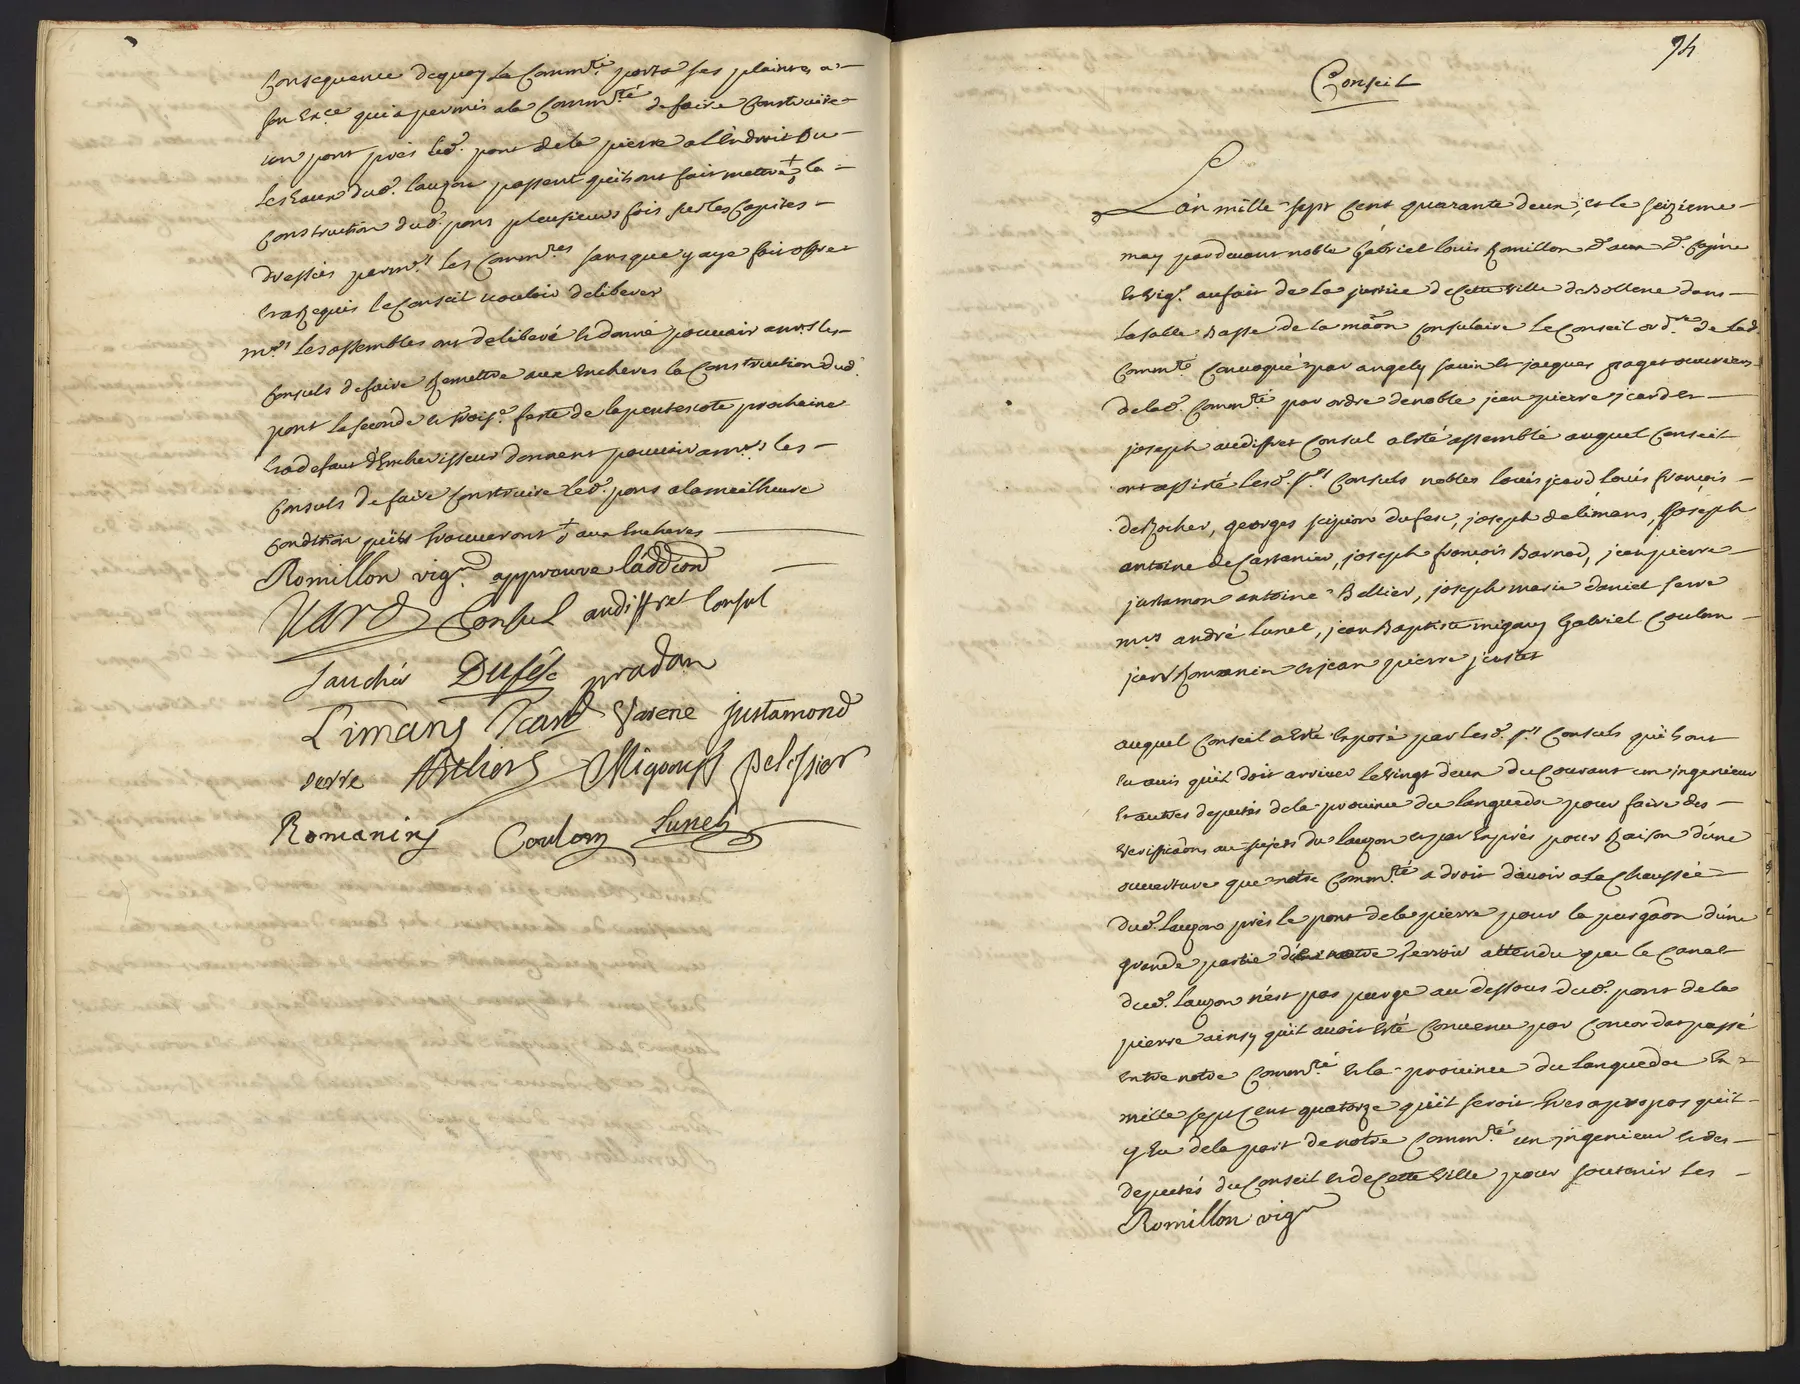 Consequence dequoy la Comm.té porta ses plaintes a
son Ex.ce qui a permis a la Comm.té de faire Construire
un pont près led. pont de la pierre a l'Endroit Du
les Eaux dud. lauzon passent qu'ils ont fait mettre + la
Construction dud. pont plusieurs fois sur les Capites
dressés par m.rs les Comm.res sans que y aye fait offre
Et a Requis le Conseil vouloir deliberer
m.rs les assemblés ont deliberé et donné pouvoir a m.rs les
Consuls de faire Remettre aux Encheres la Construction dud.
pont la seconde et trois.e feste de la pentecote prochaine
Et a defaut d'Encherisseur donnent pouvoir a m.rs les
Consuls de faire Construire led. pont a la meilheure
Condition qu'ils trouveront + aux Encheres
Romillon vig.r approuve l'addion
Icard Consul audiffret Consul
fauchér Duféfc pradon
Limans Icard Varene justamond
serre Migouss pelissier
Romanins Coulom Lunel
94
Conseil
L'an mille sept Cent quarante deux, et le seizieme
may pardevant noble Gabriel louis Romillon d.r aux d. Regime
Et Vig.r au fait de la justice de Cette ville de Bollene dans
la salle Basse de la maõn Consulaire le Conseil ord.re de lad
Comm.té Convoqué par angely savin et jacques paget ouvriers
de lad. Comm.té par ordre de noble jean pierre icard et
joseph audiffret Consul a Esté assemblé auquel Conseil
ont assisté lesd. s.rs Consuls nobles louis jcard louis françois
de Rocher, georges scipion dufesc, joseph de limans, joseph
antoine de Cartenier, joseph françois Barnod, jean pierre
justamon antoine Bellier, joseph marie daniel serre
m.rs andré lunel, jean Baptiste migous Gabriel Coulon
jean Romanin et jean pierre justet
auquel Conseil a Esté Exposé par lesd. s.rs Consuls qu'ils ont
Eu avis qu'il doit arriver le vingt deux du Courant un ingenieur
Et autres deputés de la province du languedoc pour faire des
verifficaõns au sujets du lauzon et par Exprés pour Raison d'une
ouverture que notre Comm.té a droit d'avoir a la Chaussée
dud. lauzon près le pont de la pierre pour la purgaõn d'une
grande partie de notre terroir attendu que le Canal
dud. lauzon n'est pas purge au dessous dud. pont de la
pierre ainsy qu'il avoit Esté Convenu par Concordat passé
Entre notre Comm.té Et la province du languedoc En
mille sept Cent quatorze qu'il seroit tres apropos qu'il
y Eu de la part de notre Comm.té un jngenieur et des
deputés du Conseil Et de Cette ville pour soutenir les
Romillon vig.r